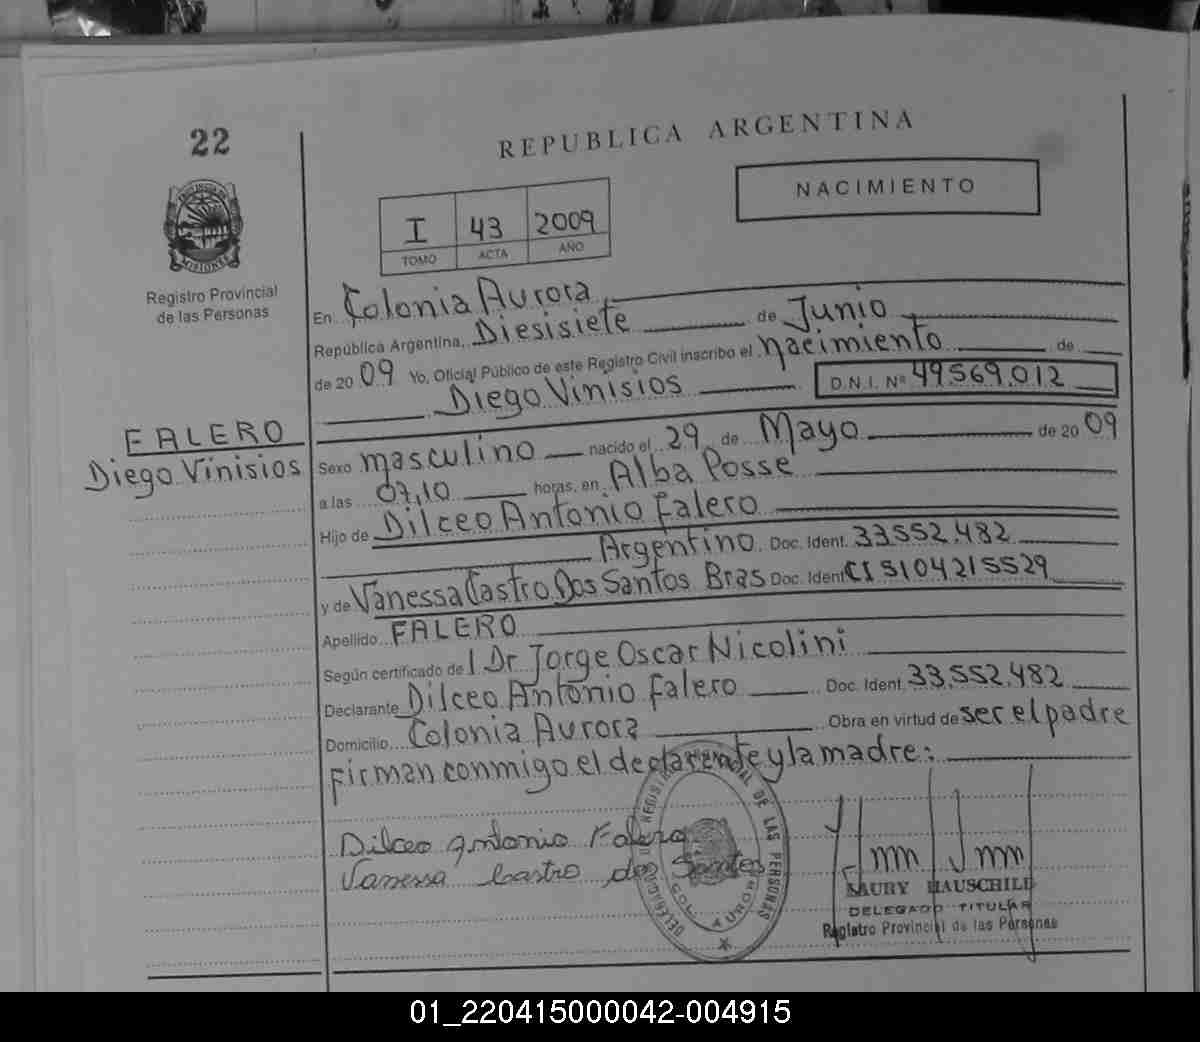 22
REPUBLICA ARGENTINA
NACIMIENTO
I 43 2009
TOMO ACTA AÑO
PROVINCIA DE MISIONES
Registro Provincial
de las Personas
En Colonia Aurora
República Argentina, Diesisiete de Junio
de 2009 Yo, Oficial Público de este Registro Civil inscribo el nacimiento de
Diego Vinisios D.N.I. Nº 49.569.012
FALERO
Diego Vinisios
Sexo masculino nacido el 29 de Mayo de 2009
a las 07,10 horas, en Alba Posse
Hijo de Dilceo Antonio Falero
Argentino. Doc. Ident. 33.552.482
y de Vanessa Castro Dos Santos Bras Doc. Ident CI 5104215529
Apellido FALERO
Según certificado de l Dr Jorge Oscar Nicolini
Declarante Dilceo Antonio Falero Doc. Ident. 33.552.482
Domicilio Colonia Aurora Obra en virtud de ser el padre
Firman conmigo el declarente y la madre:
Dilceo Antonio Falero
Vanessa Castro dos Santos
REGISTRO PROVINCIAL DE LAS PERSONAS
COL. AURORA
MAURY HAUSCHILD
DELEGADO TITULAR
Registro Provincial de las Personas
01_220415000042-004915